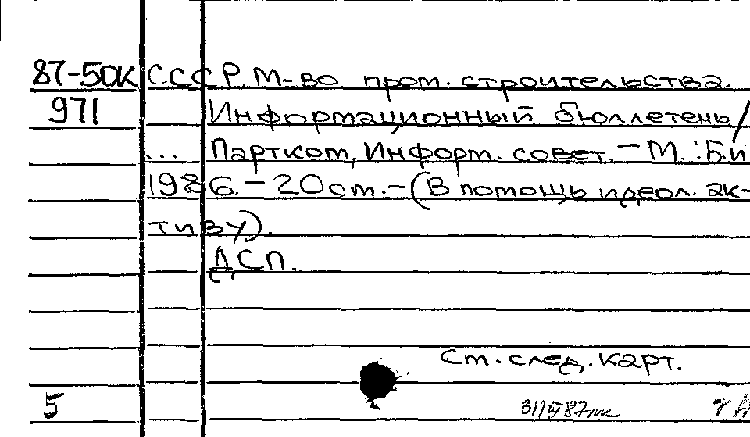 87-50К СССР. М-во пром. строительства.
971 Информационный бюллетень/
... Партком, Информ. совет. - М. : Б.и
1986. - 20 см. - (В помощь идеол. ак-
тиву).
ДСП.
См. след. карт.
5